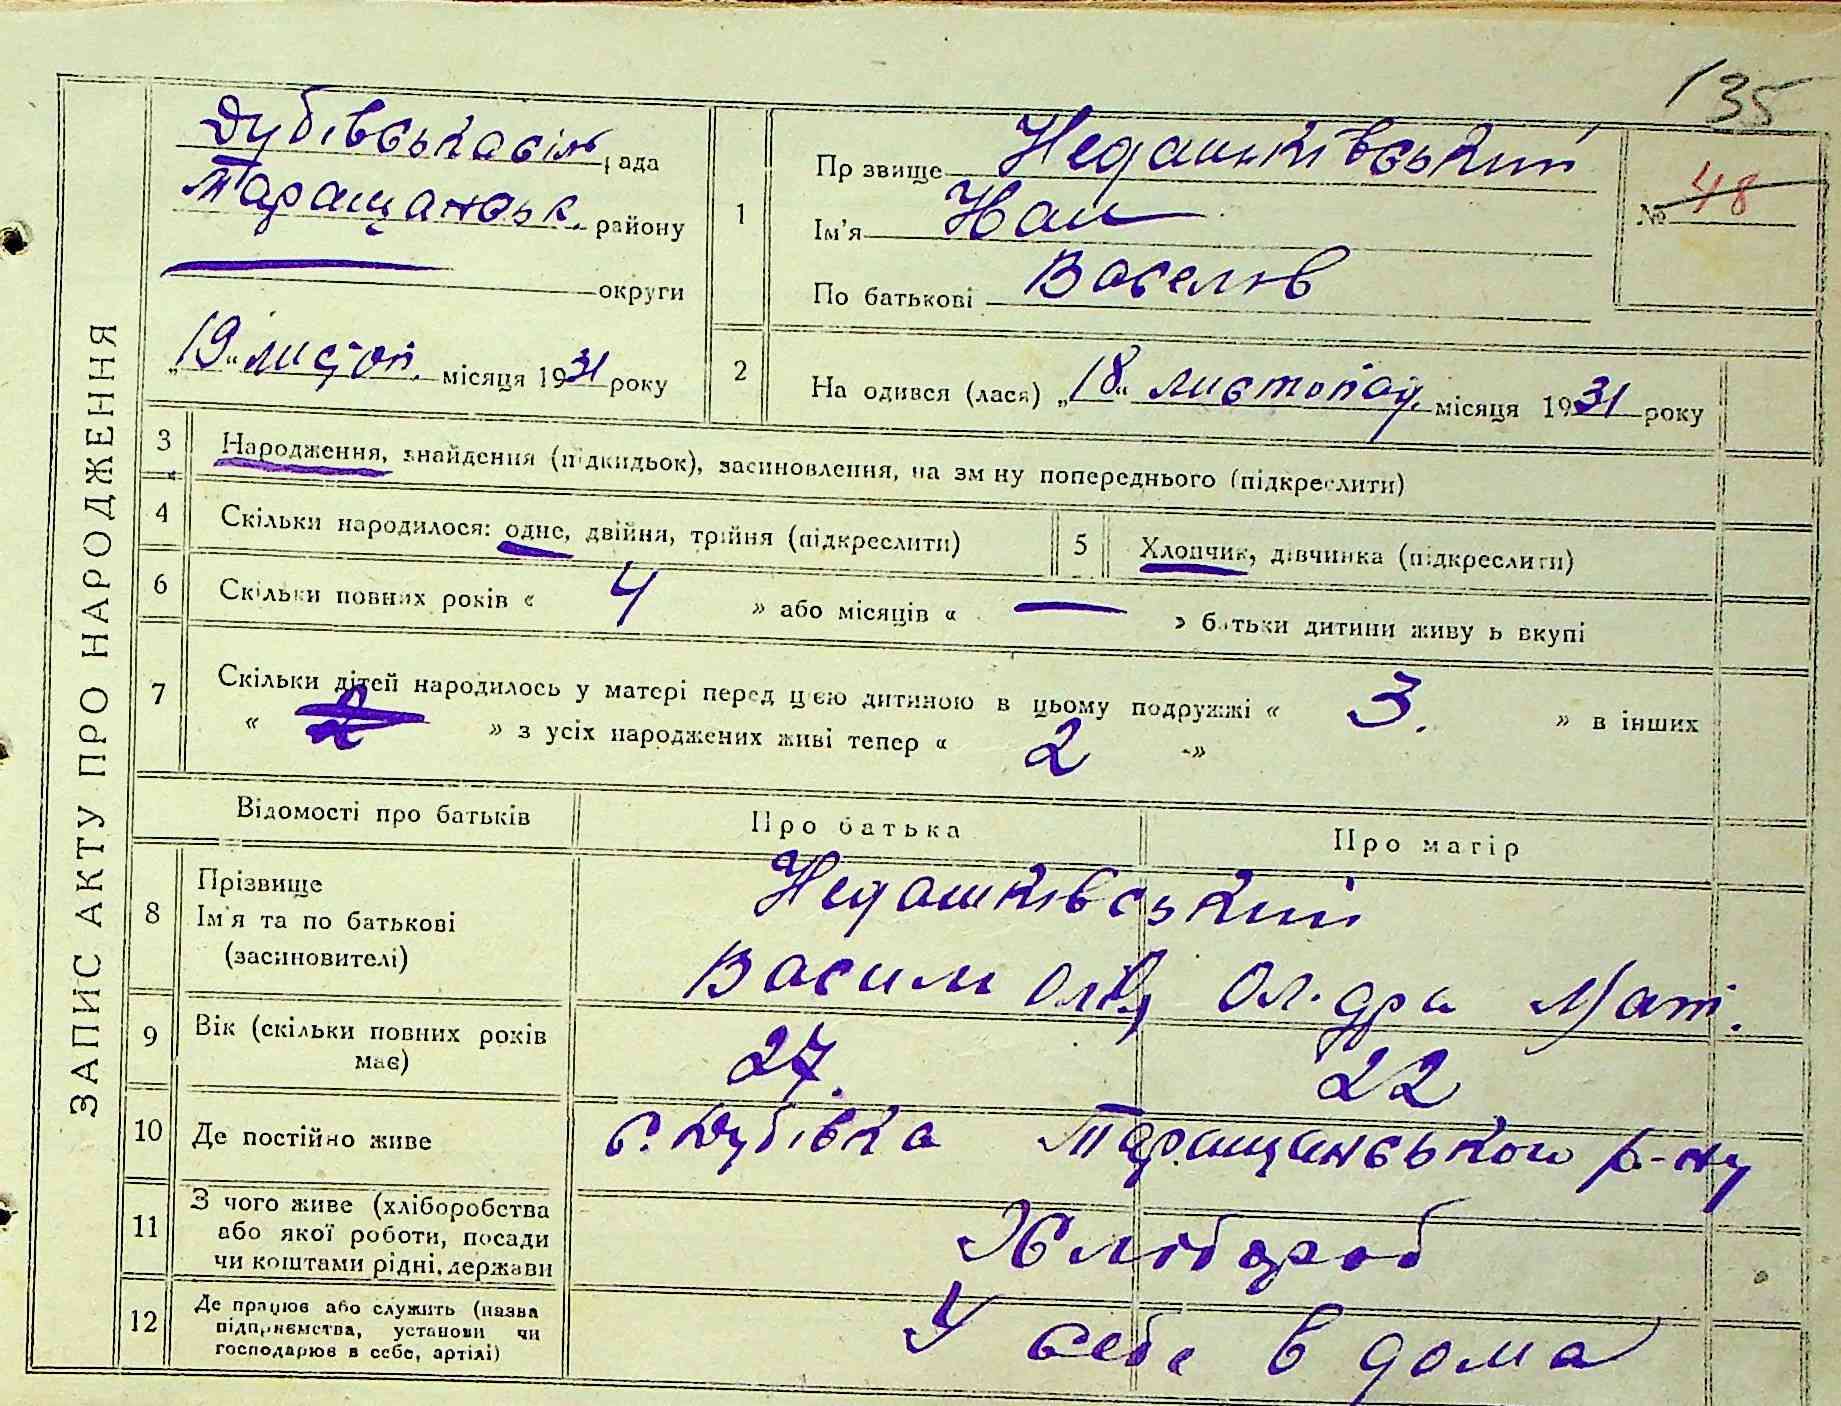 135
Дубівська сіль рада
Таращанськ. району
округи
„19“ листоп. місяця 1931 року
ЗАПИС АКТУ ПРО НАРОДЖЕННЯ
1
Прзвище Недашківський
Ім'я Іван
По батькові Васелів
№ 48
2 На одився (лася) „18“ листопад. місяця 1931 року
3 Народження, знайдення (підкидьок), засиновлення, на зм ну попереднього (підкреслити)
4 Скільки народилося: одне, двійня, трійня (підкреслити)
5 Хлопчик, дівчинка (підкреслити)
6 Скільки повних років « 4 » або місяців « — » батьки дитини живу ь вкупі
7 Скільки дітей народилось у матері перед цією дитиною в цьому подружжі « 3. » в інших
« 2 » з усіх народжених живі тепер « 2 -»
Відомості про батьків Про батька Про матір
8 Прізвище
Ім'я та по батькові
(засиновителі)
Недашківський
Василь Ол. дра Мат.
9 Вік (скільки повних років
має)
27. 22
10 Де постійно живе с. Дубівка Таращанського р-ну
11 З чого живе (хліборобства
або якої роботи, посади
чи коштами рідні, держави
Хлібороб
12 Де працює або служить (назва
підприємства, установи чи
господарює в себе, артілі)
У себе в дома